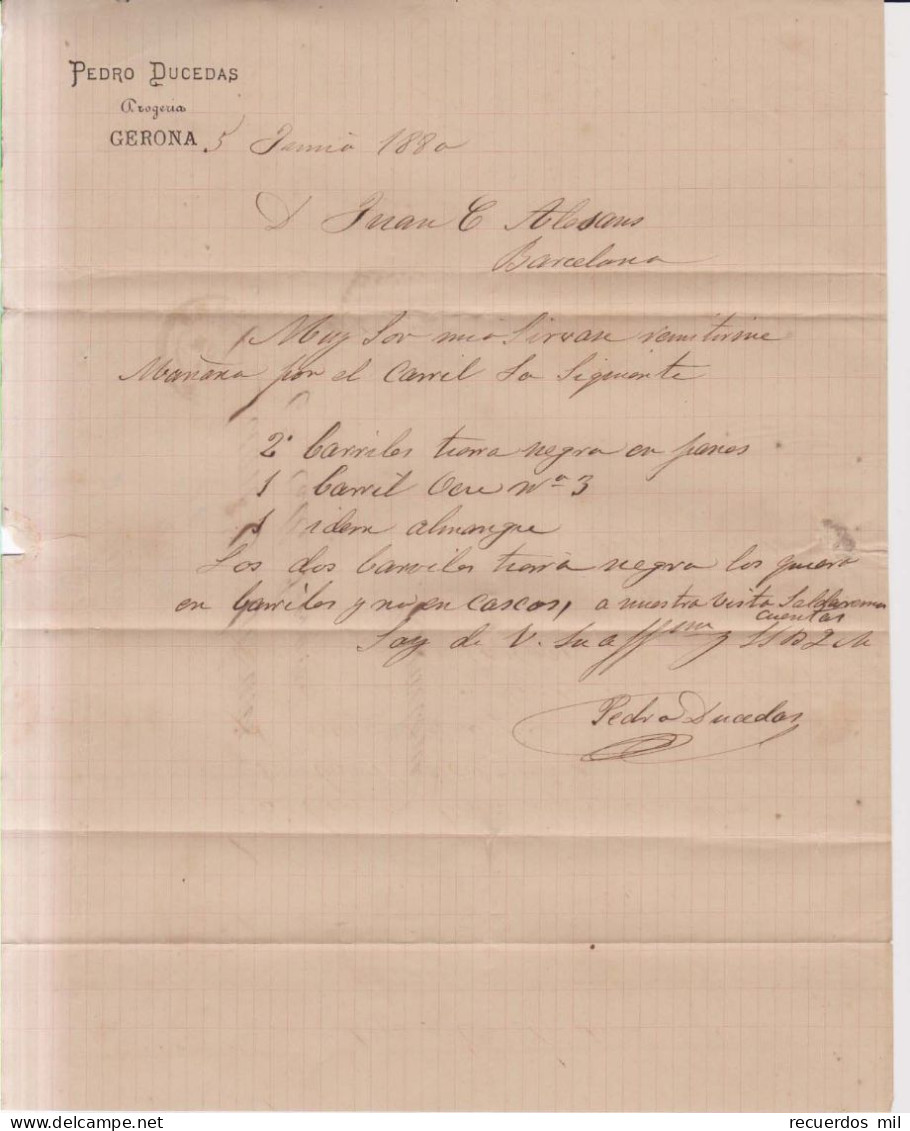 PEDRO DUCEDAS
Drogeria
GERONA 5 Junio 1880
D Juan C Alesans
Barcelona
Muy Sor mio Sirvan remitirme
Mañana por el Carril Lo Siguiente
2 barriles tierra negra en panes
1 barril Ocre Nº 3
1 idem almangre
Los dos barriles tierra negra los quiero
en barriles y no en cascos, a nuestra vista Saldaremos
cuentas
Soy de V. Su affmo y SSS
Pedro Ducedas
recuerdos mil